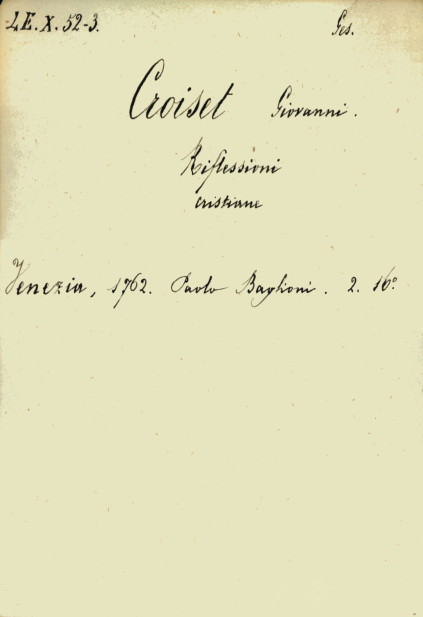 4E.X.52-3. Ges.
Croiset Giovanni.
Riflessioni
cristiane
Venezia, 1762. Paolo Baglioni. 2. 16°